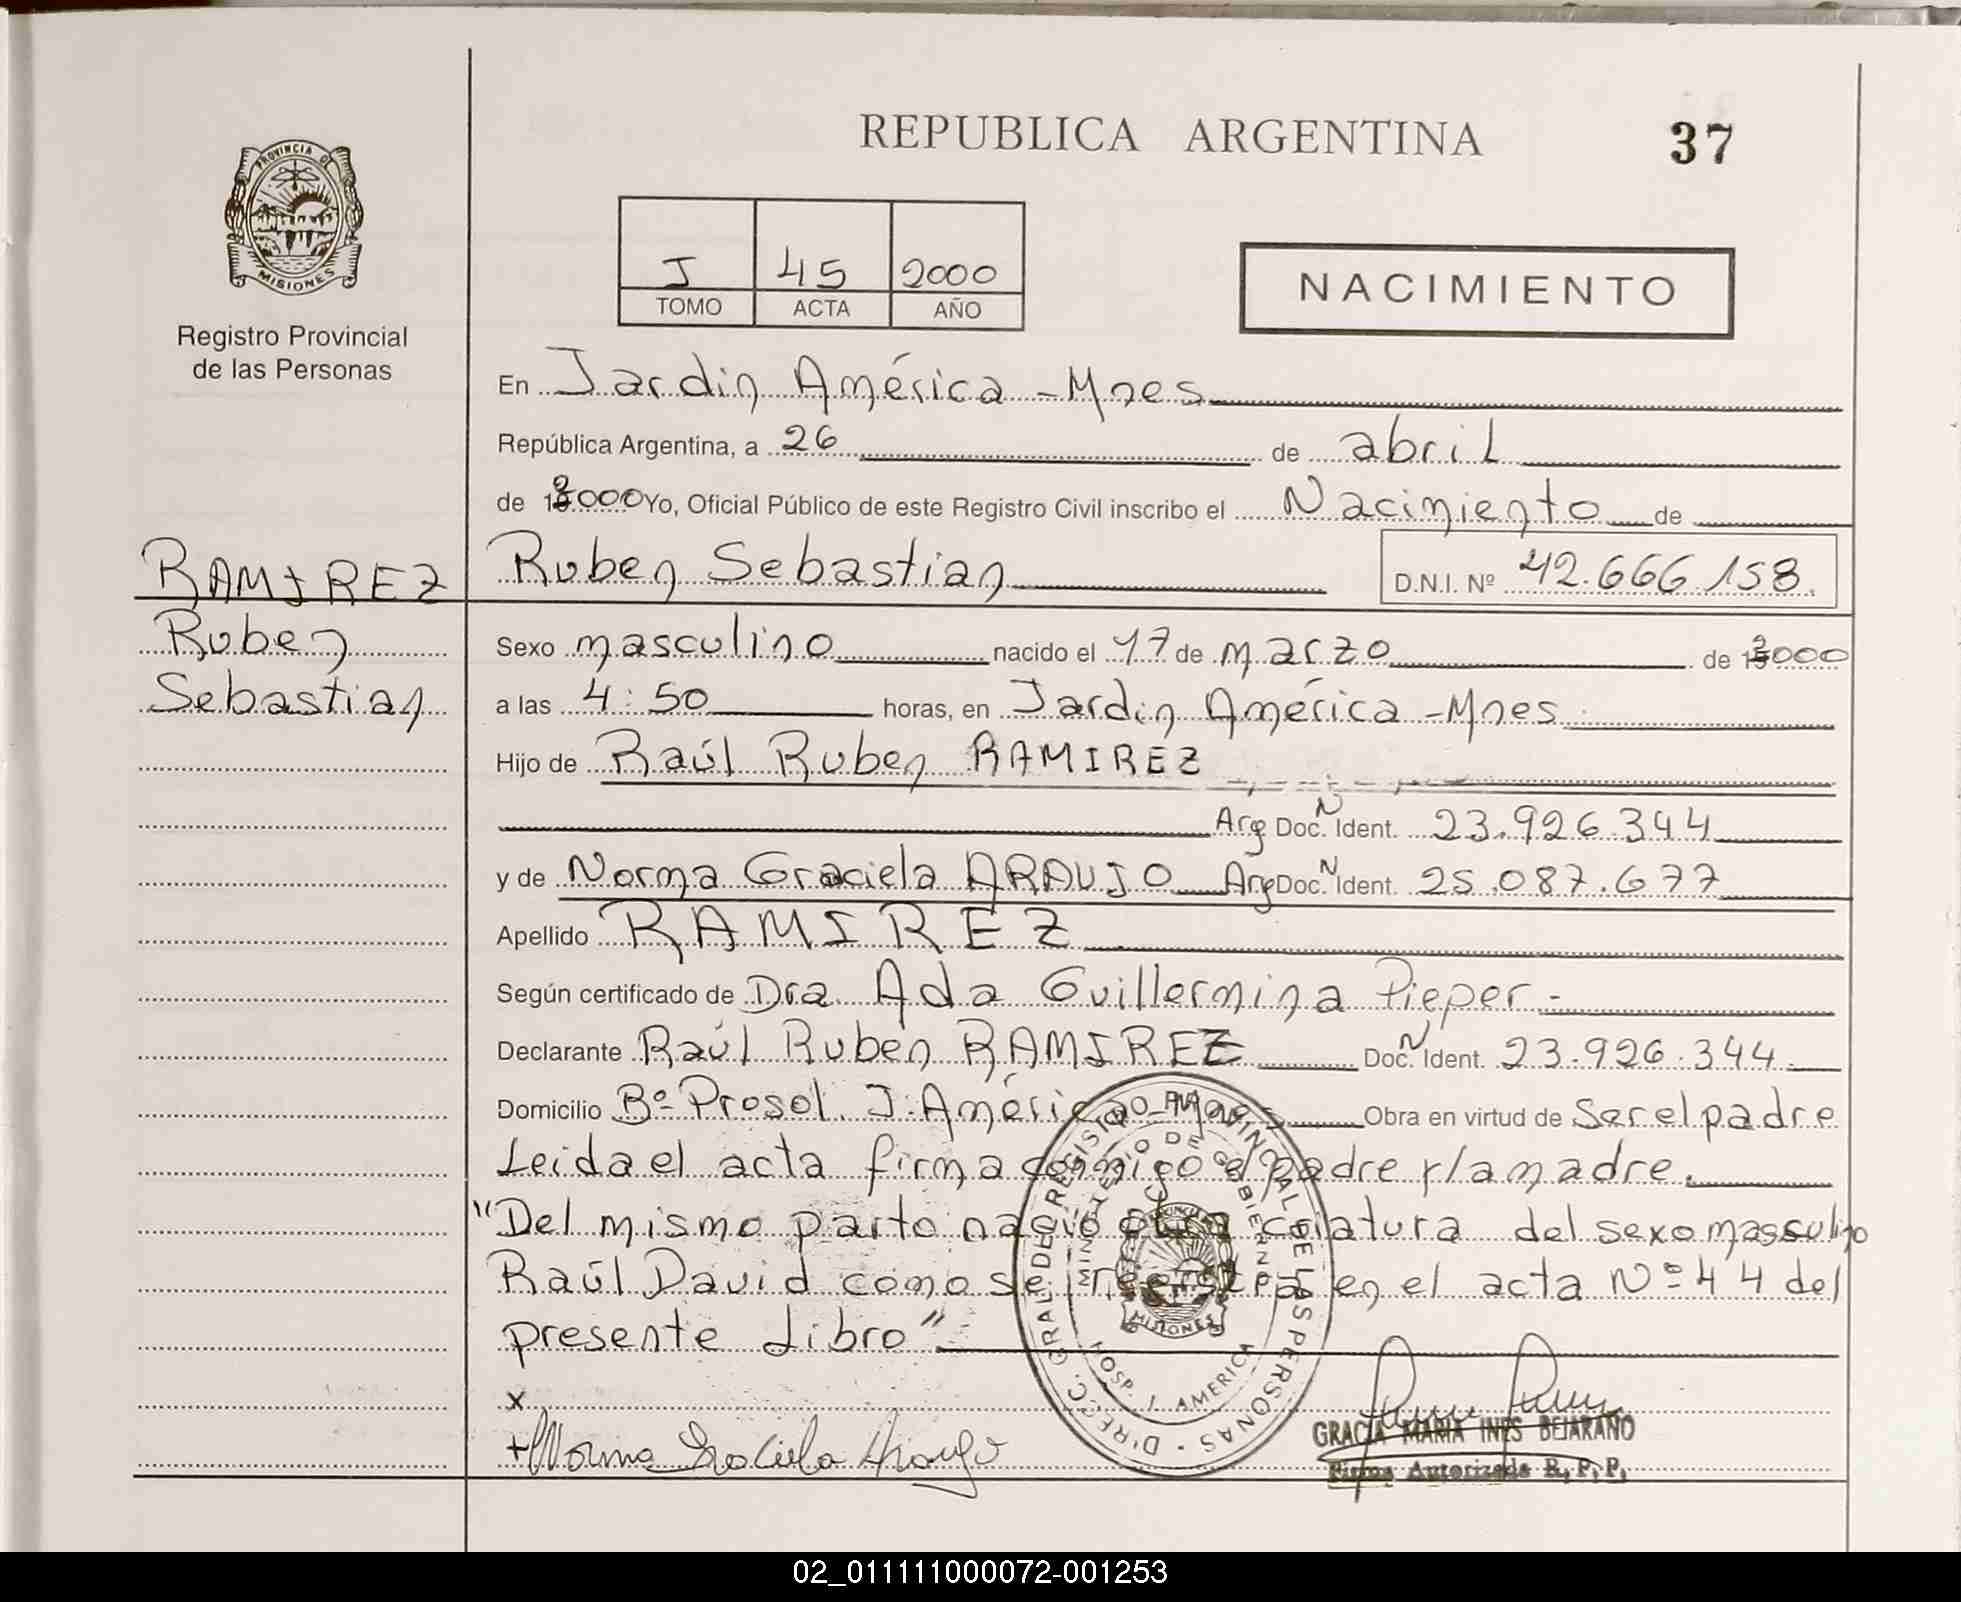 REPUBLICA ARGENTINA
37
PROVINCIA DE
MISIONES
Registro Provincial
de las Personas
J 45 2000
TOMO ACTA AÑO
NACIMIENTO
En Jardin América - Mnes
República Argentina, a 26 de abril
de 2000 Yo, Oficial Público de este Registro Civil inscribo el Nacimiento de
RAMIREZ
Ruben
Sebastian
Ruben Sebastian D.N.I. Nº 42.666.158.
Sexo masculino nacido el 17 de marzo de 2000
a las 4:50 horas, en Jardin América - Mnes
Hijo de Raúl Ruben RAMIREZ
Arg Doc. N Ident. 23.926.344
y de Norma Graciela ARAUJO Arg Doc. N Ident. 25.087.677
Apellido RAMIREZ
Según certificado de Dra Ada Guillermina Pieper.-
Declarante Raúl Ruben RAMIREZ Doc. N Ident. 23.926.344.
Domicilio Bº Prosol. J. América - Mnes Obra en virtud de Ser el padre
Leida el acta firma conmigo el padre y la madre.
"Del mismo parto nació otra criatura del sexo masculino
Raúl David como se registra en el acta Nº 44 del
presente Libro"
x
+ Norma Graciela Araujo
DIREC. GRAL. DE REGISTRO PROVINCIAL DE LAS PERSONAS
MINISTERIO DE GOBIERNO
MISIONES
HOSP. J. AMERICA
GRACIA MARIA INES BEJARANO
Firma Autorizada R. P. P.
02_011111000072-001253